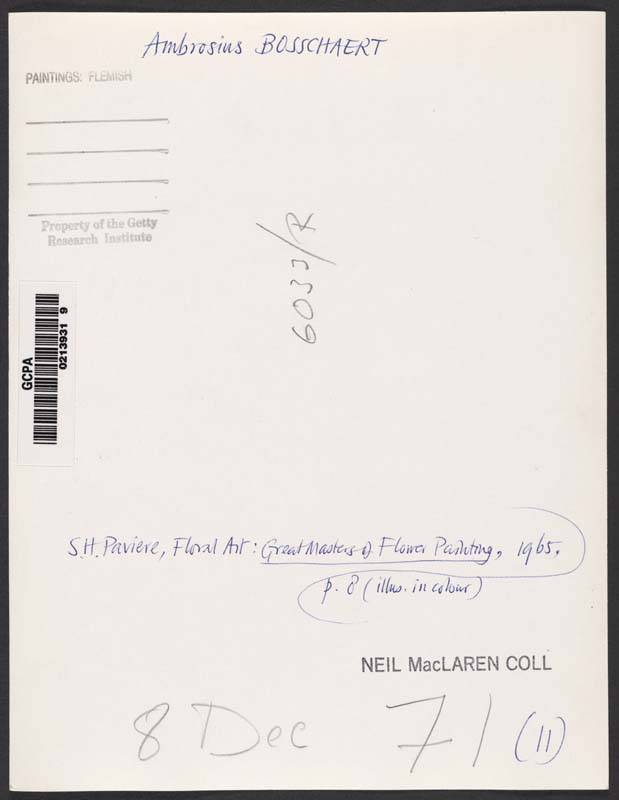 Ambrosius BOSSCHAERT
PAINTINGS: FLEMISH
Property of the Getty
Research Institute
GCPA
0213931 9
S.H. Paviere, Floral Art: Great Masters of Flower Painting, 1965,
p. 8 (illus. in colour)
NEIL MacLAREN COLL
8 Dec 71 (11)